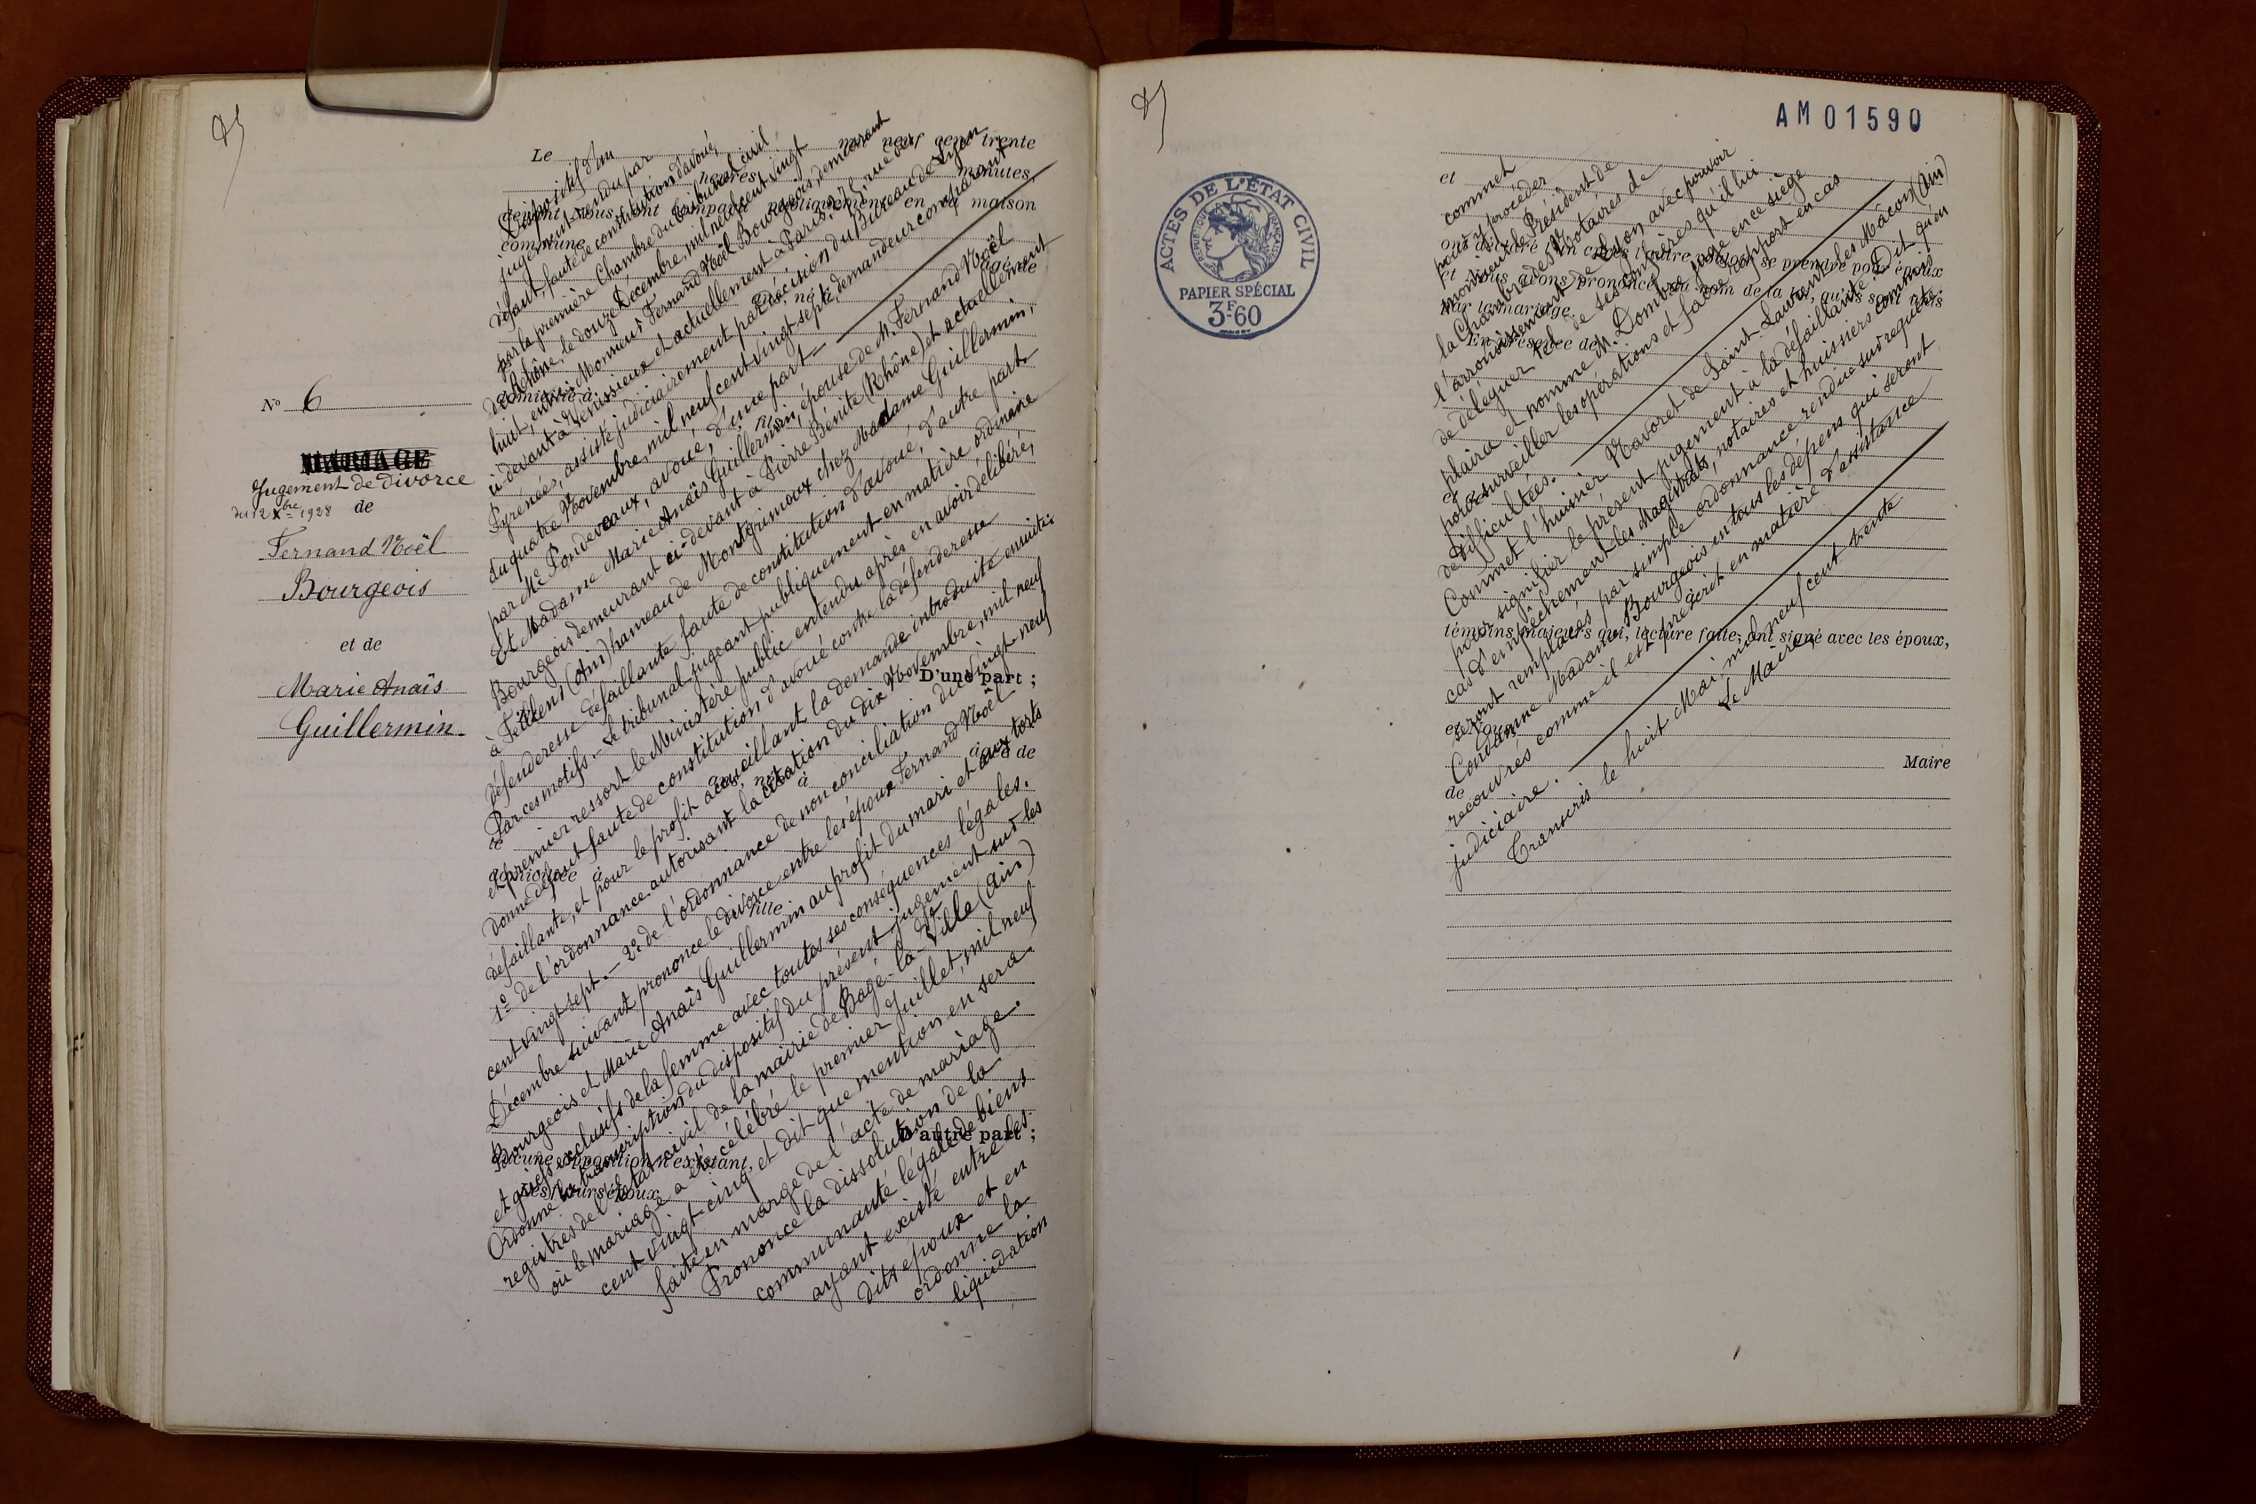 N° 6
MARIAGE
Jugement de divorce
du 12 Xbre 1928 de
Fernand Noël
Bourgeois
et de
Marie Anaïs
Guillermin.
Le mil neuf cent trente
heures minutes,
devant Nous ont comparu publiquement en la maison
commune
âgé de
ans, né
domicilié à
fils
D'une part ;
âgée de
ans, née à
domiciliée à
fille
D'autre part ;
aucune opposition n'existant,
les futurs époux
Dispositif d'un
jugement rendu par
défaut, faute de constitution d'avoué,
par la première Chambre du tribunal civil
du Rhône, le douze Décembre, mil neuf cent vingt
huit, entre: Monsieur Fernand Noël Bourgeois, demeurant
ci-devant à Venissieux et actuellement à Paris, rue des
Pyrénées, assisté judiciairement par décision du Bureau de Lyon
du quatre Novembre, mil neuf cent vingt sept, demandeur comparant
par Me Pondeveaux, avoué, d'une part
Et Madame Marie Anaïs Guillermin, épouse de M. Fernand Noël
Bourgeois demeurant ci-devant à Pierre Bénite (Rhône) et actuellement
à Feillens (Ain) hameau de Montgrimoux chez Madame Guillermin,
défenderesse défaillante faute de constitution d'avoué, d'autre part
Par ces motifs – Le tribunal jugeant publiquement en matière ordinaire
et premier ressort le Ministère public entendu après en avoir délibéré,
donne défaut faute de constitution d'avoué contre la défenderesse
défaillante, et pour le profit accueillant la demande introduite ensuite:
1° de l'ordonnance autorisant la citation du dix Novembre, mil neuf
cent vingt sept.– 2° de l'ordonnance de non conciliation du vingt neuf
Décembre suivant prononce le divorce entre les époux Fernand Noël
Bourgeois et Marie Anaïs Guillermin au profit du mari et aux torts
et griefs exclusifs de la femme avec toutes ses conséquences légales.
Ordonne la transcription du dispositif du présent jugement sur les
registres de l'état civil de la mairie de Bagé-la-Ville (Ain)
où le mariage a été célébré le premier Juillet, mil neuf
cent vingt cinq, et dit que mention en sera
faite en marge de l'acte de mariage.
Prononce la dissolution de la
communauté légale de biens
ayant existé entre les
dits époux et en
ordonne la
liquidation
AM 01590
ACTES DE L'ÉTAT CIVIL
RÉPUBLIQUE FRANÇAISE
PAPIER SPÉCIAL
3F60
et
ont déclaré l'un après l'autre vouloir se prendre pour époux
et Nous avons prononcé au nom de la loi, qu'ils sont unis
par le mariage.
En présence de
témoins majeurs qui, lecture faite, ont signé avec les époux,
et Nous
Maire
de
commet
pour y procéder
Monsieur le Président de
la Chambre des Notaires de
l'arrondissement de Lyon avec pouvoir
de déléguer tel de ses confrères qu'il lui
plaira et nomme M. Dombre juge en ce siège
pour surveiller les opérations et faire rapport en cas
de difficultées.
Commet l'huissier Navoret de Saint-Laurent-les-Mâcon (Ain)
pour signifier le présent jugement à la défaillante. Dit qu'en
cas d'empêchement les Magistrats, notaires et huissiers commis
seront remplacés par simple ordonnance rendue sur requête.
Condamne Madame Bourgeois en tous les dépens qui seront
recouvrés comme il est prescrit en matière d'assistance
judiciaire.
Transcris le huit Mai mil neuf cent trente
Le Maire,